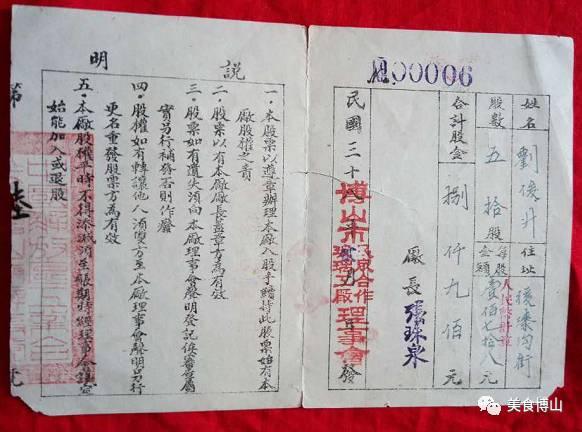 00006
姓名 劉俊升 住址
股數 五拾股 每股金額 壹佰七拾八元
合計股金 捌仟九佰元
廠長 張珠泉
博山市
合作
理事會
民國三十
發
說明
一·本股票以遵章辦理本廠入股手續持此股票始有本
廠股權之責
二·股票以有本廠廠長蓋章方為有效
三·股票如有遺失須向本廠理事會聲明登記俟審查屬
實另行補發否則作廢
四·股權如有轉讓他人須雙方至本廠理事會聲明另行
更名重發股票方為有效
五·本廠股權平時不得添減須至賬期時經理事會議定
始能加入或退股
第
美食博山